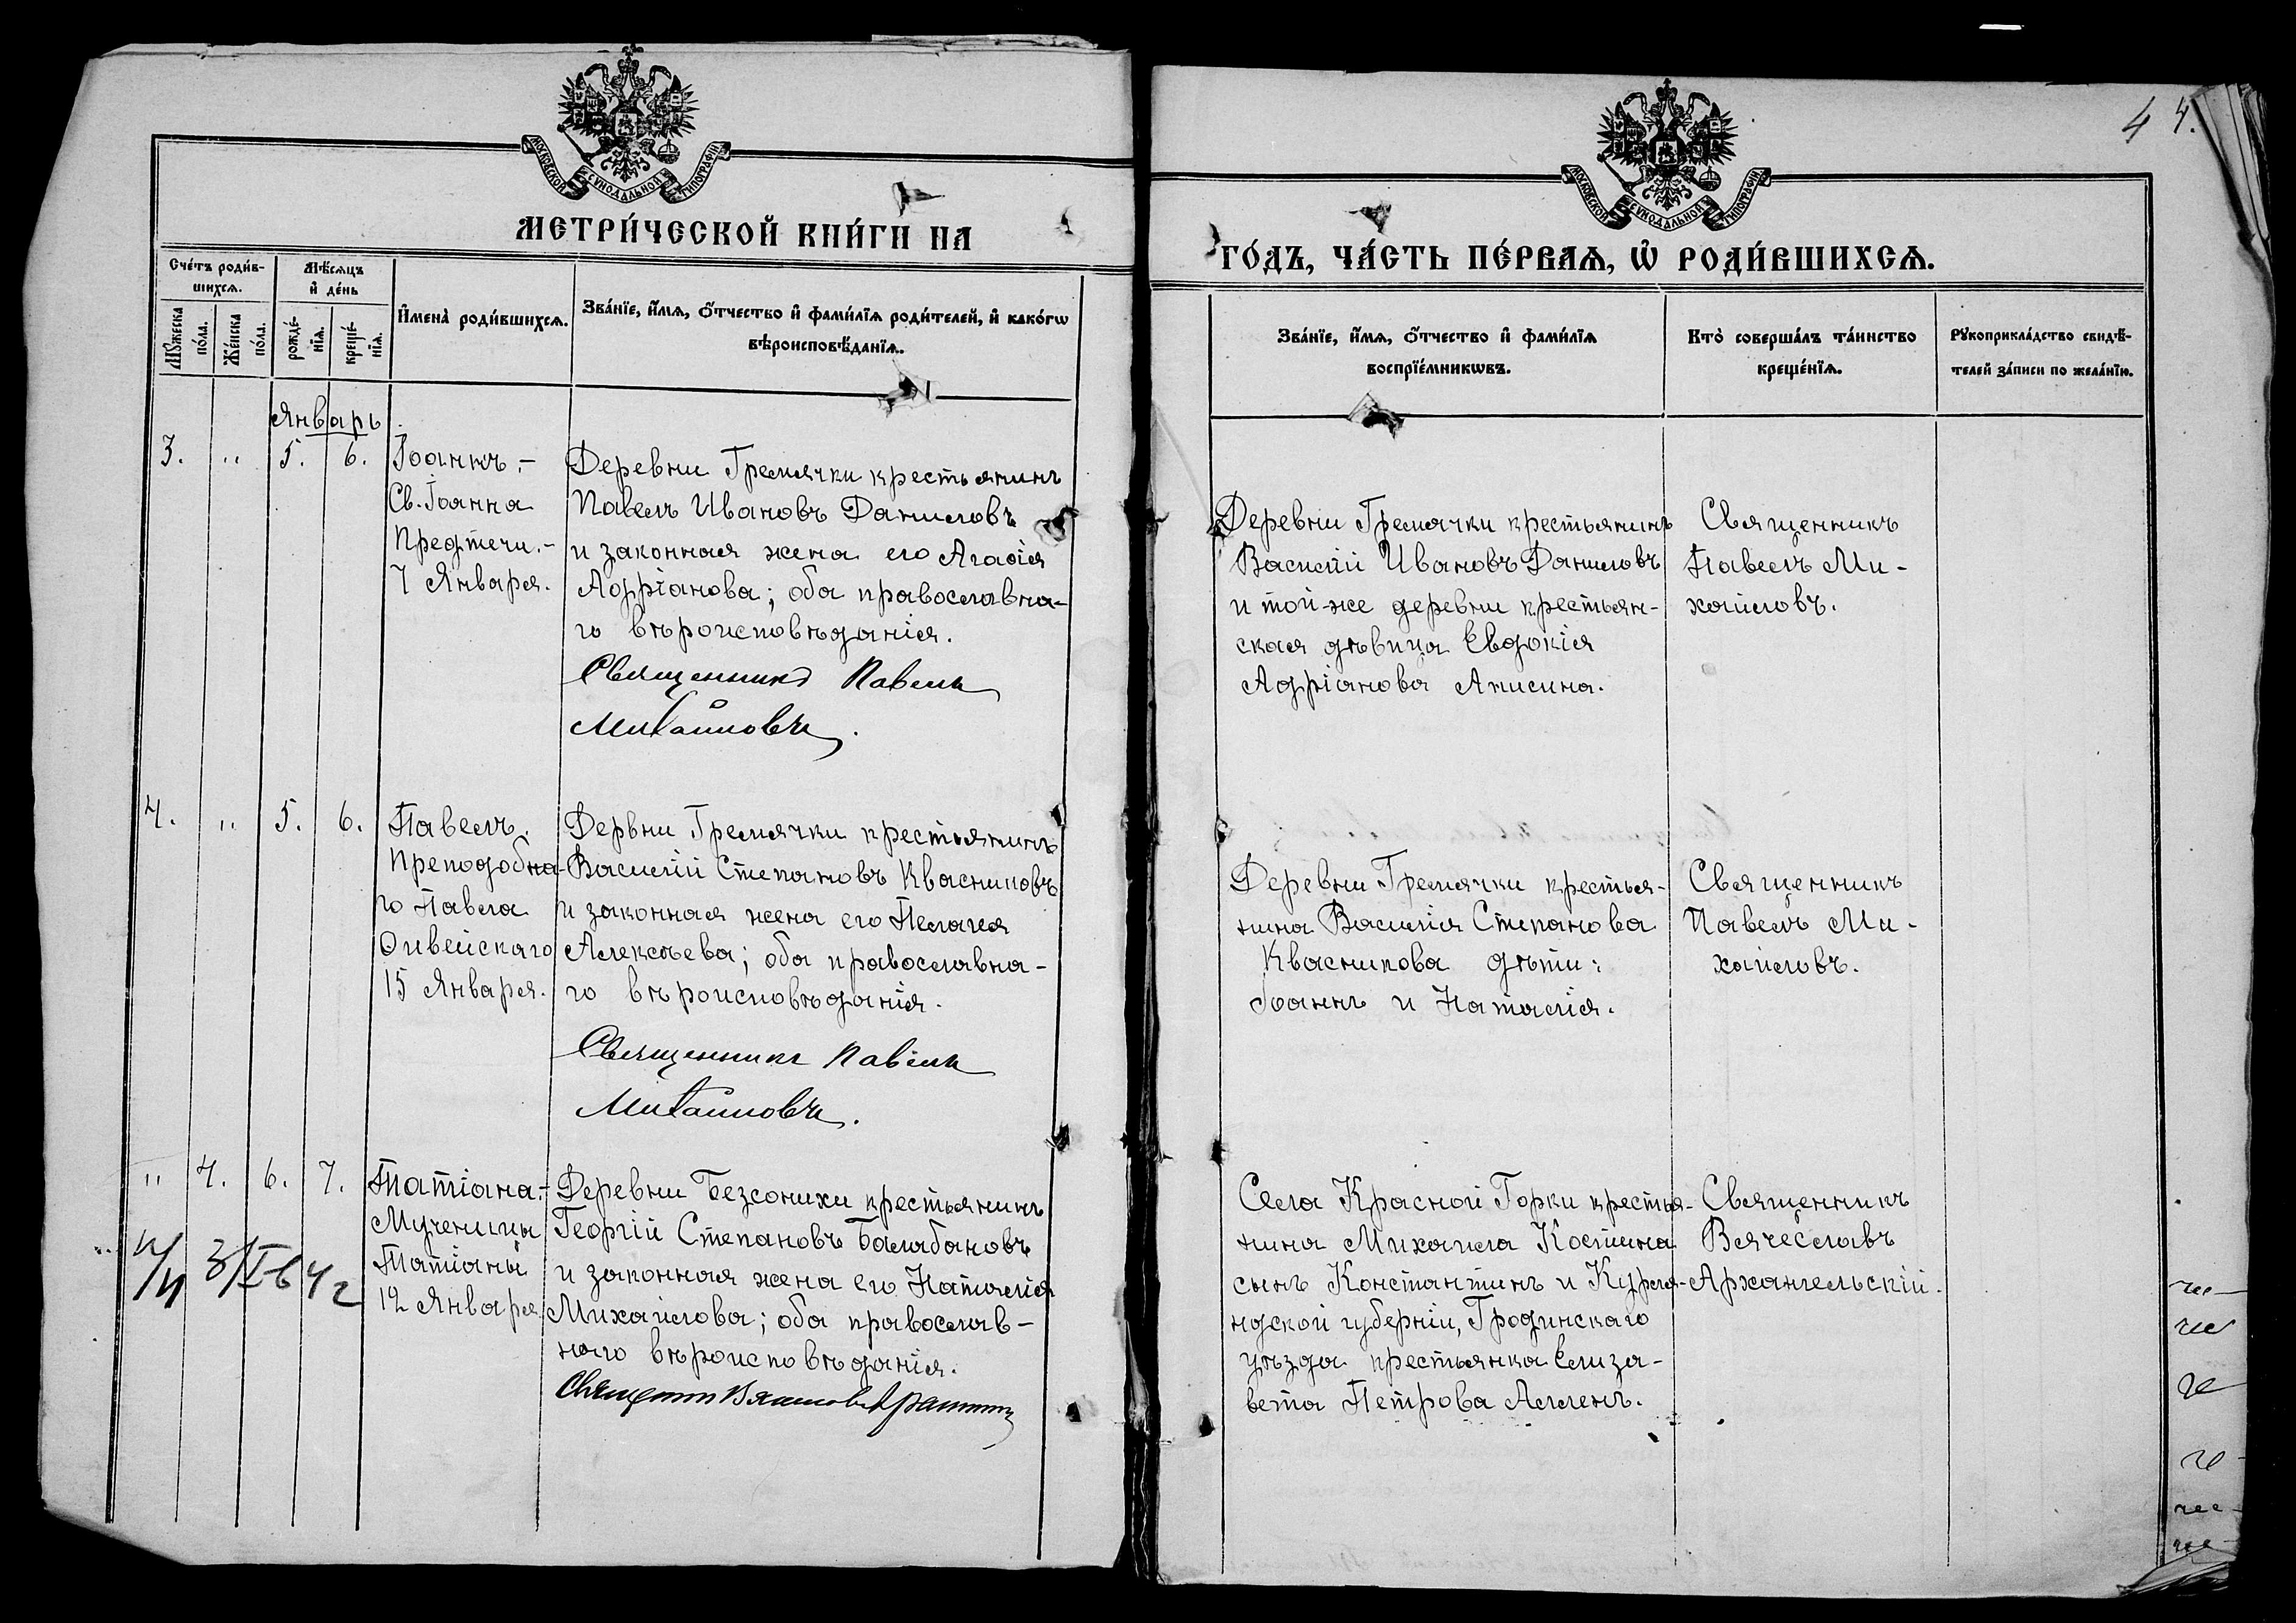 4 4.
МОСКОВСКОЙ СѴНОДАЛЬНОЙ ТИПОГРАФІИ
МОСКОВСКОЙ СѴНОДАЛЬНОЙ ТИПОГРАФІИ
МЕТРИ́ЧЕСКОЙ КНИ́ГИ НА
ГО́ДЪ, ЧА́СТЬ ПЕ́РВАЯ, Ѡ҆ РОДИ́ВШИХСЯ.
Сче́тъ роди́в-
шихсѧ.
Мꙋ́жеска
по́ла.
Же́нска
по́ла.
Мѣ́сѧцъ
и҆ де́нь
рожде́-
нїѧ.
креще́-
нїѧ.
И҆мена̀ роди́вшихсѧ.
Зва́нїе, и҆́мѧ, ѻ҆́тчество и҆ фами́лїѧ роди́телей, и҆ како́гѡ
вѣроисповѣ́данїѧ.
Зва́нїе, и҆́мѧ, ѻ҆́тчество и҆ фами́лїѧ
воспрїе́мникѡвъ.
Кто̀ соверша́лъ та́инство
креще́нїѧ.
Рꙋкоприкла́дство свидѣ́-
телей за́писи по жела́нїю.
Январь
3. " 5. 6.
Іоаннъ.-
Св. Іоанна
Предтечи.-
7 Января.
Деревни Гремячки крестьянинъ
Павелъ Ивановъ Даниловъ
и законная жена его Агаѳія
Адріанова; оба православна-
го вѣроисповѣданія.
Священникъ Павелъ
Михайловъ.
Деревни Гремячки крестьянинъ
Василій Ивановъ Даниловъ
и той-же деревни крестьян-
ская дѣвица Евдокія
Адріанова Анисина.
Священникъ
Павелъ Ми-
хайловъ.
4. " 5. 6.
Павелъ.
Преподобна-
го Павла
Ѳивейскаго
15 Января.
Дервни Гремячки крестьянинъ
Василій Степановъ Квасниковъ
и законная жена его Пелагея
Алексѣева; оба православна-
го вѣроисповѣданія.
Священникъ Павелъ
Михайловъ.
Деревни Гремячки крестья-
нина Василія Степанова
Квасникова дѣти:
Іоаннъ и Наталія.
Священникъ
Павелъ Ми-
хайловъ.
" 4. 6. 7.
Татіана.-
Мученицы
Татіаны
12 Января
Деревни Безсонихи крестьянинъ
Георгій Степановъ Балабановъ
и законная жена его Наталія
Михайлова; оба православ-
наго вѣроисповѣданія.
Села Красной Горки крестья-
нина Михаила Костина
сынъ Константинъ и Курля-
ндской губерніи, Гродинскаго
уѣзда крестьянка Елиза-
вета Петрова Алленъ.
Священникъ
Вячеславъ
Архангельскій.